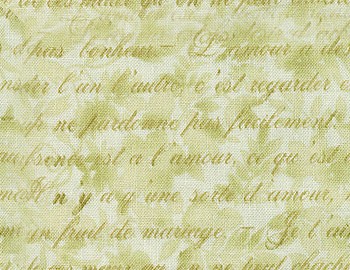 que on ne
pas bonheur — L'amour a des
l'un l'autre, c'est regarder e
ne pardonne pas facilement.
est a l'amour, ce que est
Il n'y a q'une sorte d'amour,
un fruit de mariage. — Je l'ai
on ne peut